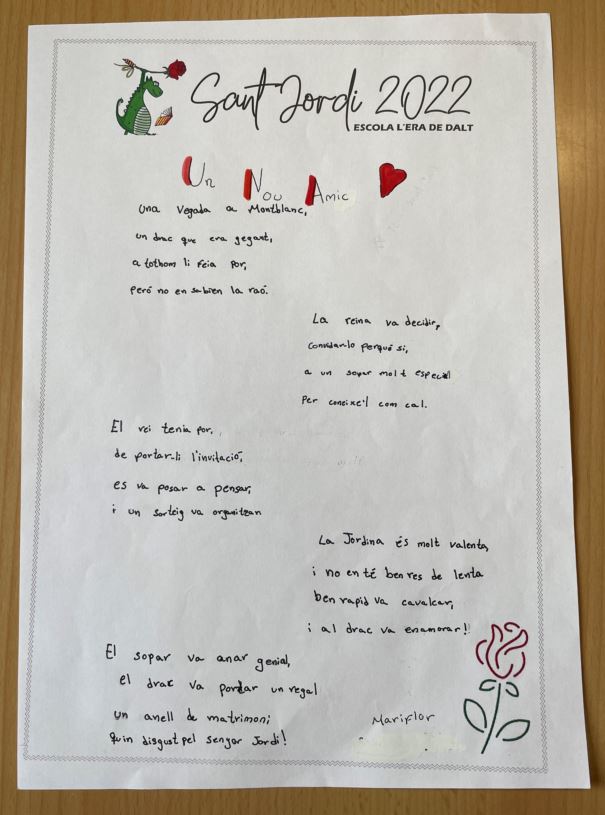 Sant Jordi 2022
ESCOLA L'ERA DE DALT
Un Nou Amic
Una vegada a Montblanc,
un drac que era gegant,
a tothom li feia por,
però no en sabien la raó.
La reina va decidir,
convidar-lo perquè sí,
a un sopar molt especial
per coneixe'l com cal.
El rei tenia por,
de portar-li l'invitació,
es va posar a pensar,
i un sorteig va organitzar
La Jordina és molt valenta,
i no en té ben res de lenta
ben rapid va cavalcar,
i al drac va enamorar!!
El sopar va anar genial,
el drac va portar un regal
un anell de matrimoni
quin disgust pel senyor Jordi!
Mariflor